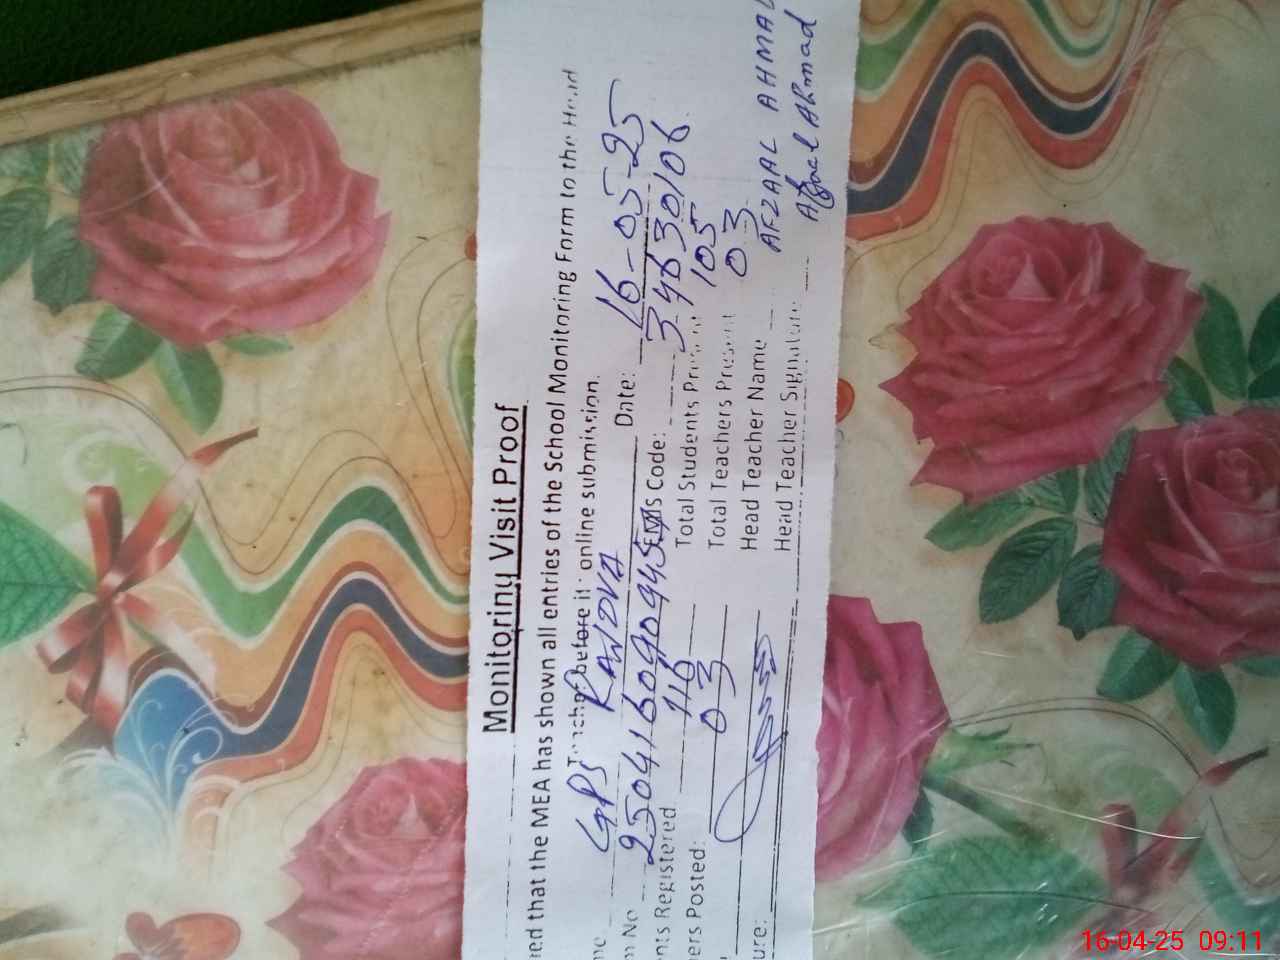 Monitoring Visit Proof
ied that the MEA has shown all entries of the School Monitoring Form to the Head
Teacher before it online submission.
me GPS RANDVA Date: 16-05-25
m No 2504160909455 EMIS Code: 34630106
nts Registered 116 Total Students Present 105
ers Posted: 03 Total Teachers Present 03
Head Teacher Name AFZAAL AHMAD
ure: Head Teacher Signature Afzaal Ahmad
16-04-25 09:11